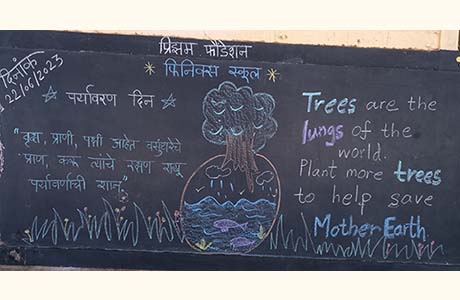 दिनांक
22/06/2023
प्रिझम फौंडेशन
फिनिक्स स्कूल
पर्यावरण दिन
"वृक्ष, प्राणी, पक्षी आहेत वसुंधरेचे
प्राण, करू त्यांचे रक्षण राखू
पर्यावरणाची शान"
Trees are the
lungs of the
world.
Plant more trees
to help save
Mother Earth.